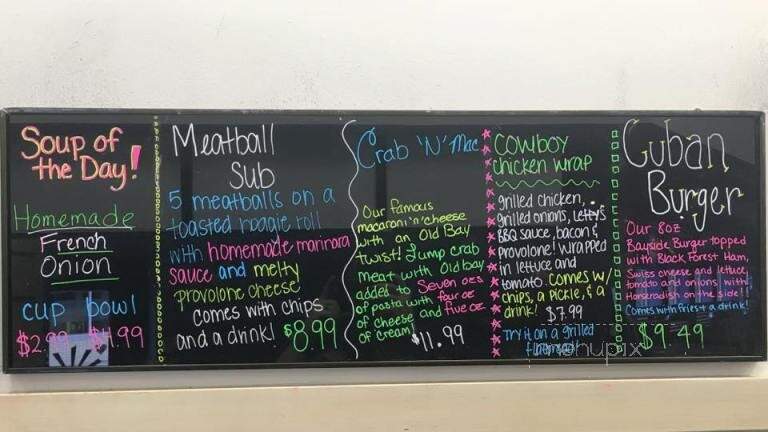 Soup of
the Day!
Homemade
French
Onion
cup bowl
$2.99 $4.99
Meatball
Sub
5 meatballs on a
toasted hoagie roll
with homemade marinara
sauce and melty
provolone cheese
comes with chips
and a drink! $8.99
Crab 'N' Mac
Our famous
macaroni 'n' cheese
with an Old Bay
twist! Lump crab
meat with Old bay
added to Seven oz's
of pasta with four oz
of cheese and five oz
of cream! $11.99
COWBOY
chicken wrap
grilled chicken,
grilled onions,
BBQ sauce, bacon &
provolone! wrapped
in lettuce and
tomato. comes w/
chips, a pickle, & a
drink! $7.99
Try it on a grilled
Cuban
Burger
Our 8oz
Bayside Burger topped
with Black Forest Ham,
Swiss cheese and lettuce,
tomato and onions with
Horseradish on the side!
Comes with fries + a drink!
$9.49
menupix